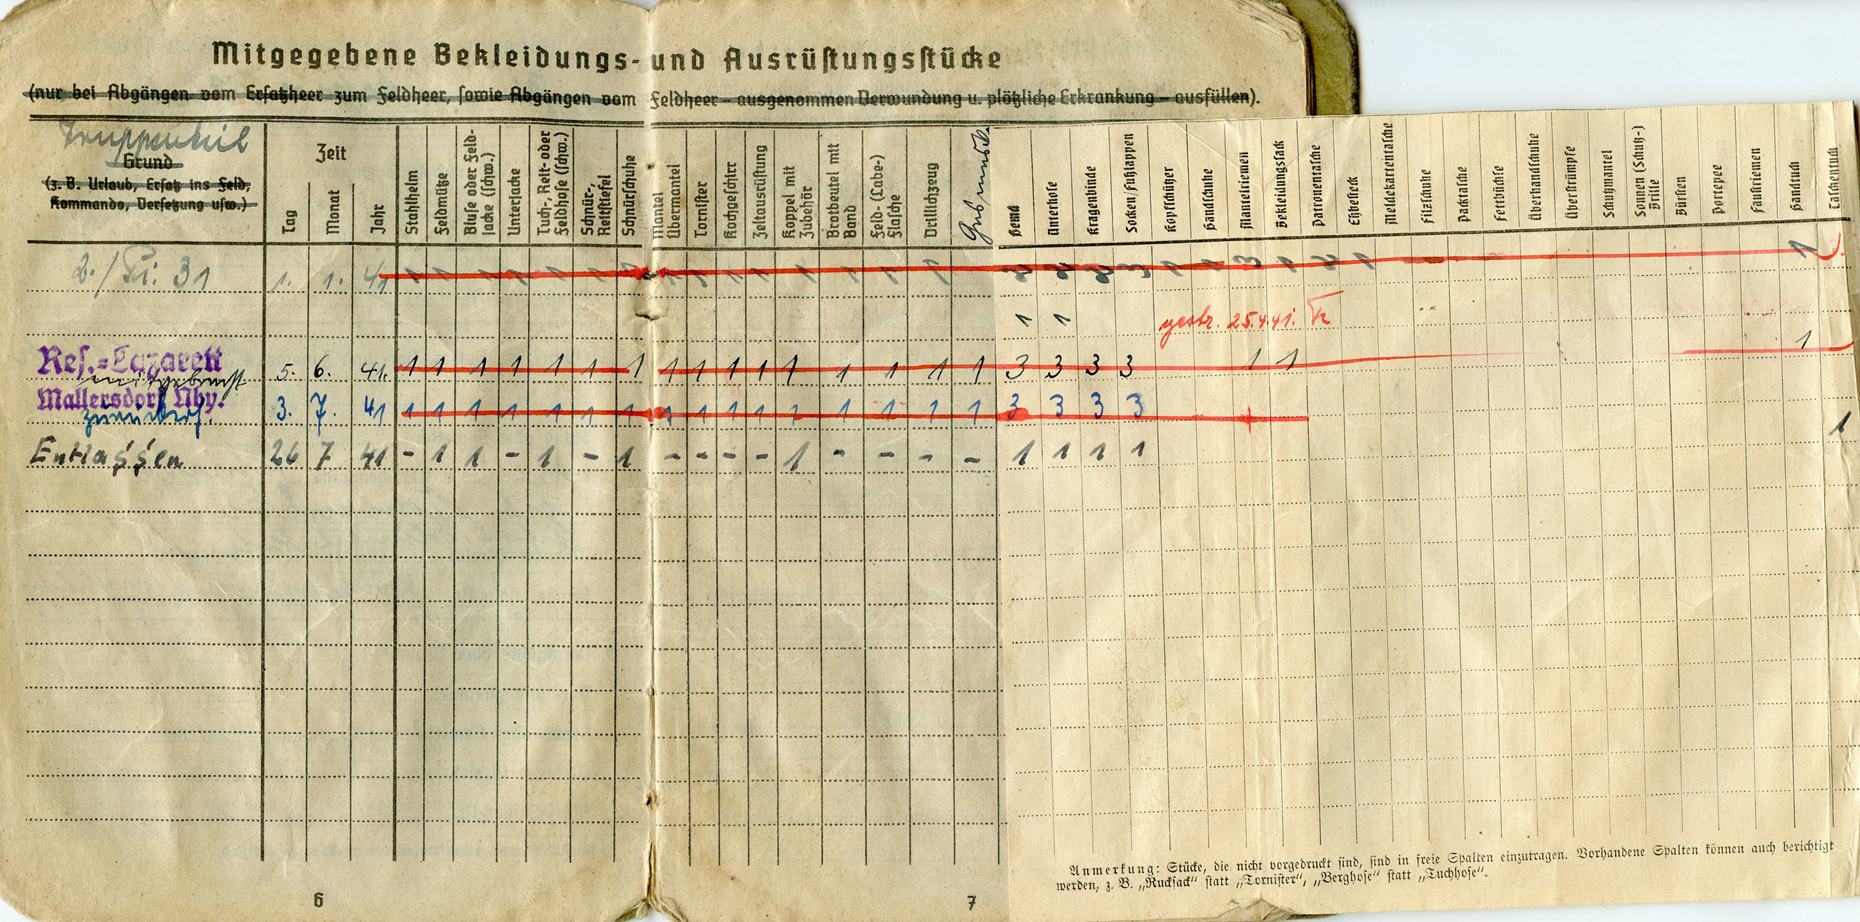 Mitgegebene Bekleidungs- und Ausrüstungsstücke
(nur bei Abgängen vom Ersatzheer zum Feldheer, sowie Abgängen vom Feldheer – ausgenommen Verwundung u. plötzliche Erkrankung – ausfüllen).
Truppenteil
Grund
(z. B. Urlaub, Ersatz ins Feld,
Kommando, Versetzung usw.)
Zeit
Tag
Monat
Jahr
Stahlhelm
Feldmütze
Bluse oder Feld-
jacke (schw.)
Unterjacke
Tuch-, Reit- oder
Feldhose (schw.)
Schnür-,
Reitstiefel
Schnürschuhe
Mantel
Übermantel
Tornister
Kochgeschirr
Zeltausrüstung
Koppel mit
Zubehör
Brotbeutel mit
Band
Feld- (Labe-)
Flasche
Drillichzeug
Hemd
Unterhose
Kragenbinde
Socken/Fußlappen
Kopfschützer
Handschuhe
Mantelriemen
Bekleidungssack
Patronentasche
Eßbesteck
Meldekartentasche
Filzschuhe
Packtasche
Fettbüchse
Überhandschuhe
Überstrümpfe
Schutzmantel
Sonnen (Schutz-)
Brille
Bürsten
Portepee
Faustriemen
Handtuch
Taschentuch
2./Pi. 31 1. 1. 41 1 1 1 1 1 1
1 1 gestr. 25.4.41.
Res.-Lazarett
mitgebracht 5. 6. 41. 1 1 1 1 1 1 1 1 1 1 1 1 1 1 1 1 3 3 3 3 1 1 1
Mallersdorf Nby.
3. 7. 41 1 1 1 1 1 1 1 1 1 1 1 1 1 1 1 1 3 3 3 3
Entlassen 26 7 41 - 1 1 - 1 - 1 - - - - 1 - - - - 1 1 1 1 1
Anmerkung: Stücke, die nicht vorgedruckt sind, sind in freie Spalten einzutragen. Vorhandene Spalten können auch berichtigt
werden, z. B. „Rucksack“ statt „Tornister“, „Berghose“ statt „Tuchhose“.
6
7